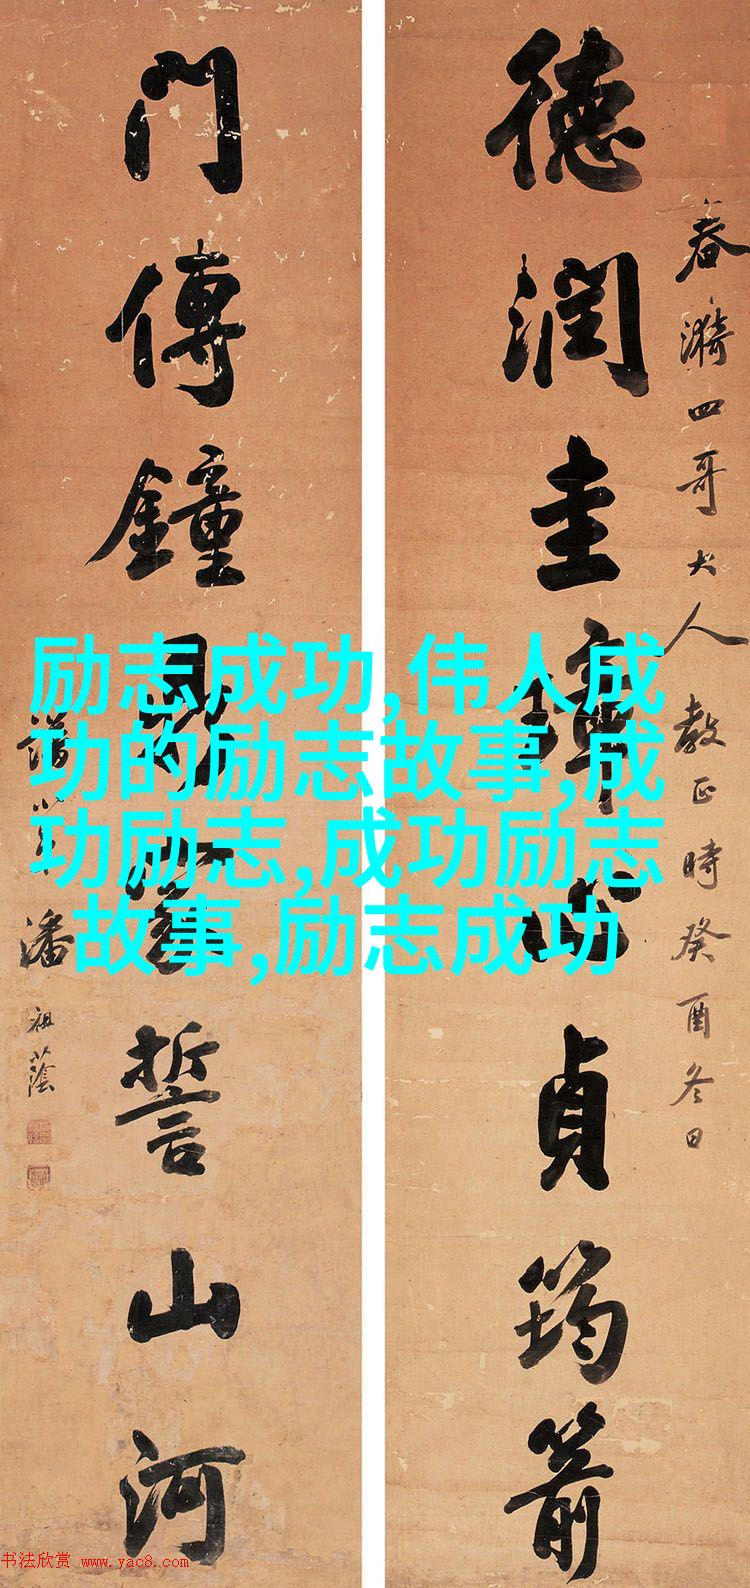 德潤圭璋心貞筠箭
春漪四哥大人教正時癸酉冬日
門傳鐘鼎誓山河
潘祖蔭
励志成功,伟人成
功的励志故事,成
功励志,成功励志
故事,励志成功
书法欣赏 www.yac8.com